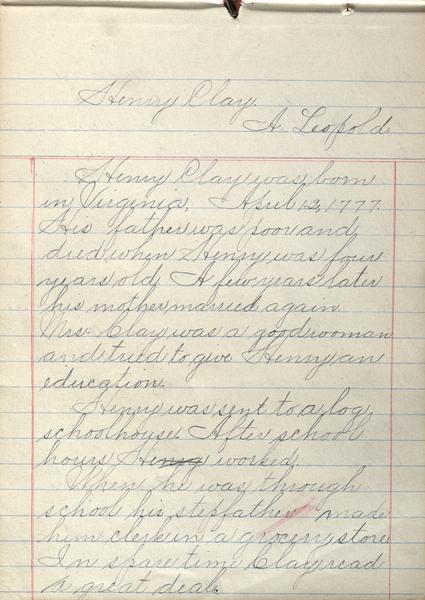 Henry Clay.
A. Leopold.
Henry Clay was born
in Virginia, April 12, 1777.
His father was poor and
died when Henry was four
years old. A few years later
his mother married again.
Mrs. Clay was a good woman
and tried to give Henry an
education.
Henry was sent to a log
schoolhouse. After school
hours Henry worked.
When he was through
school his stepfather made
him clerk in a grocery store.
In spare time Clay read
a great deal.